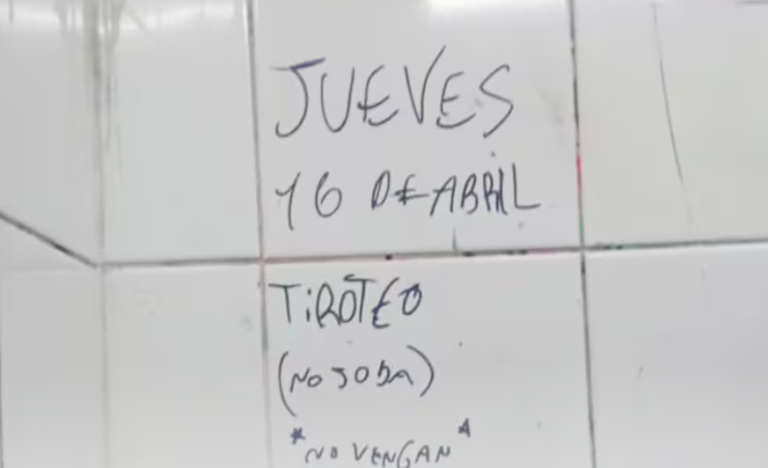 JUEVES
16 DE ABRIL
TiROTEO
(NO JODA)
*NO VENGAN*